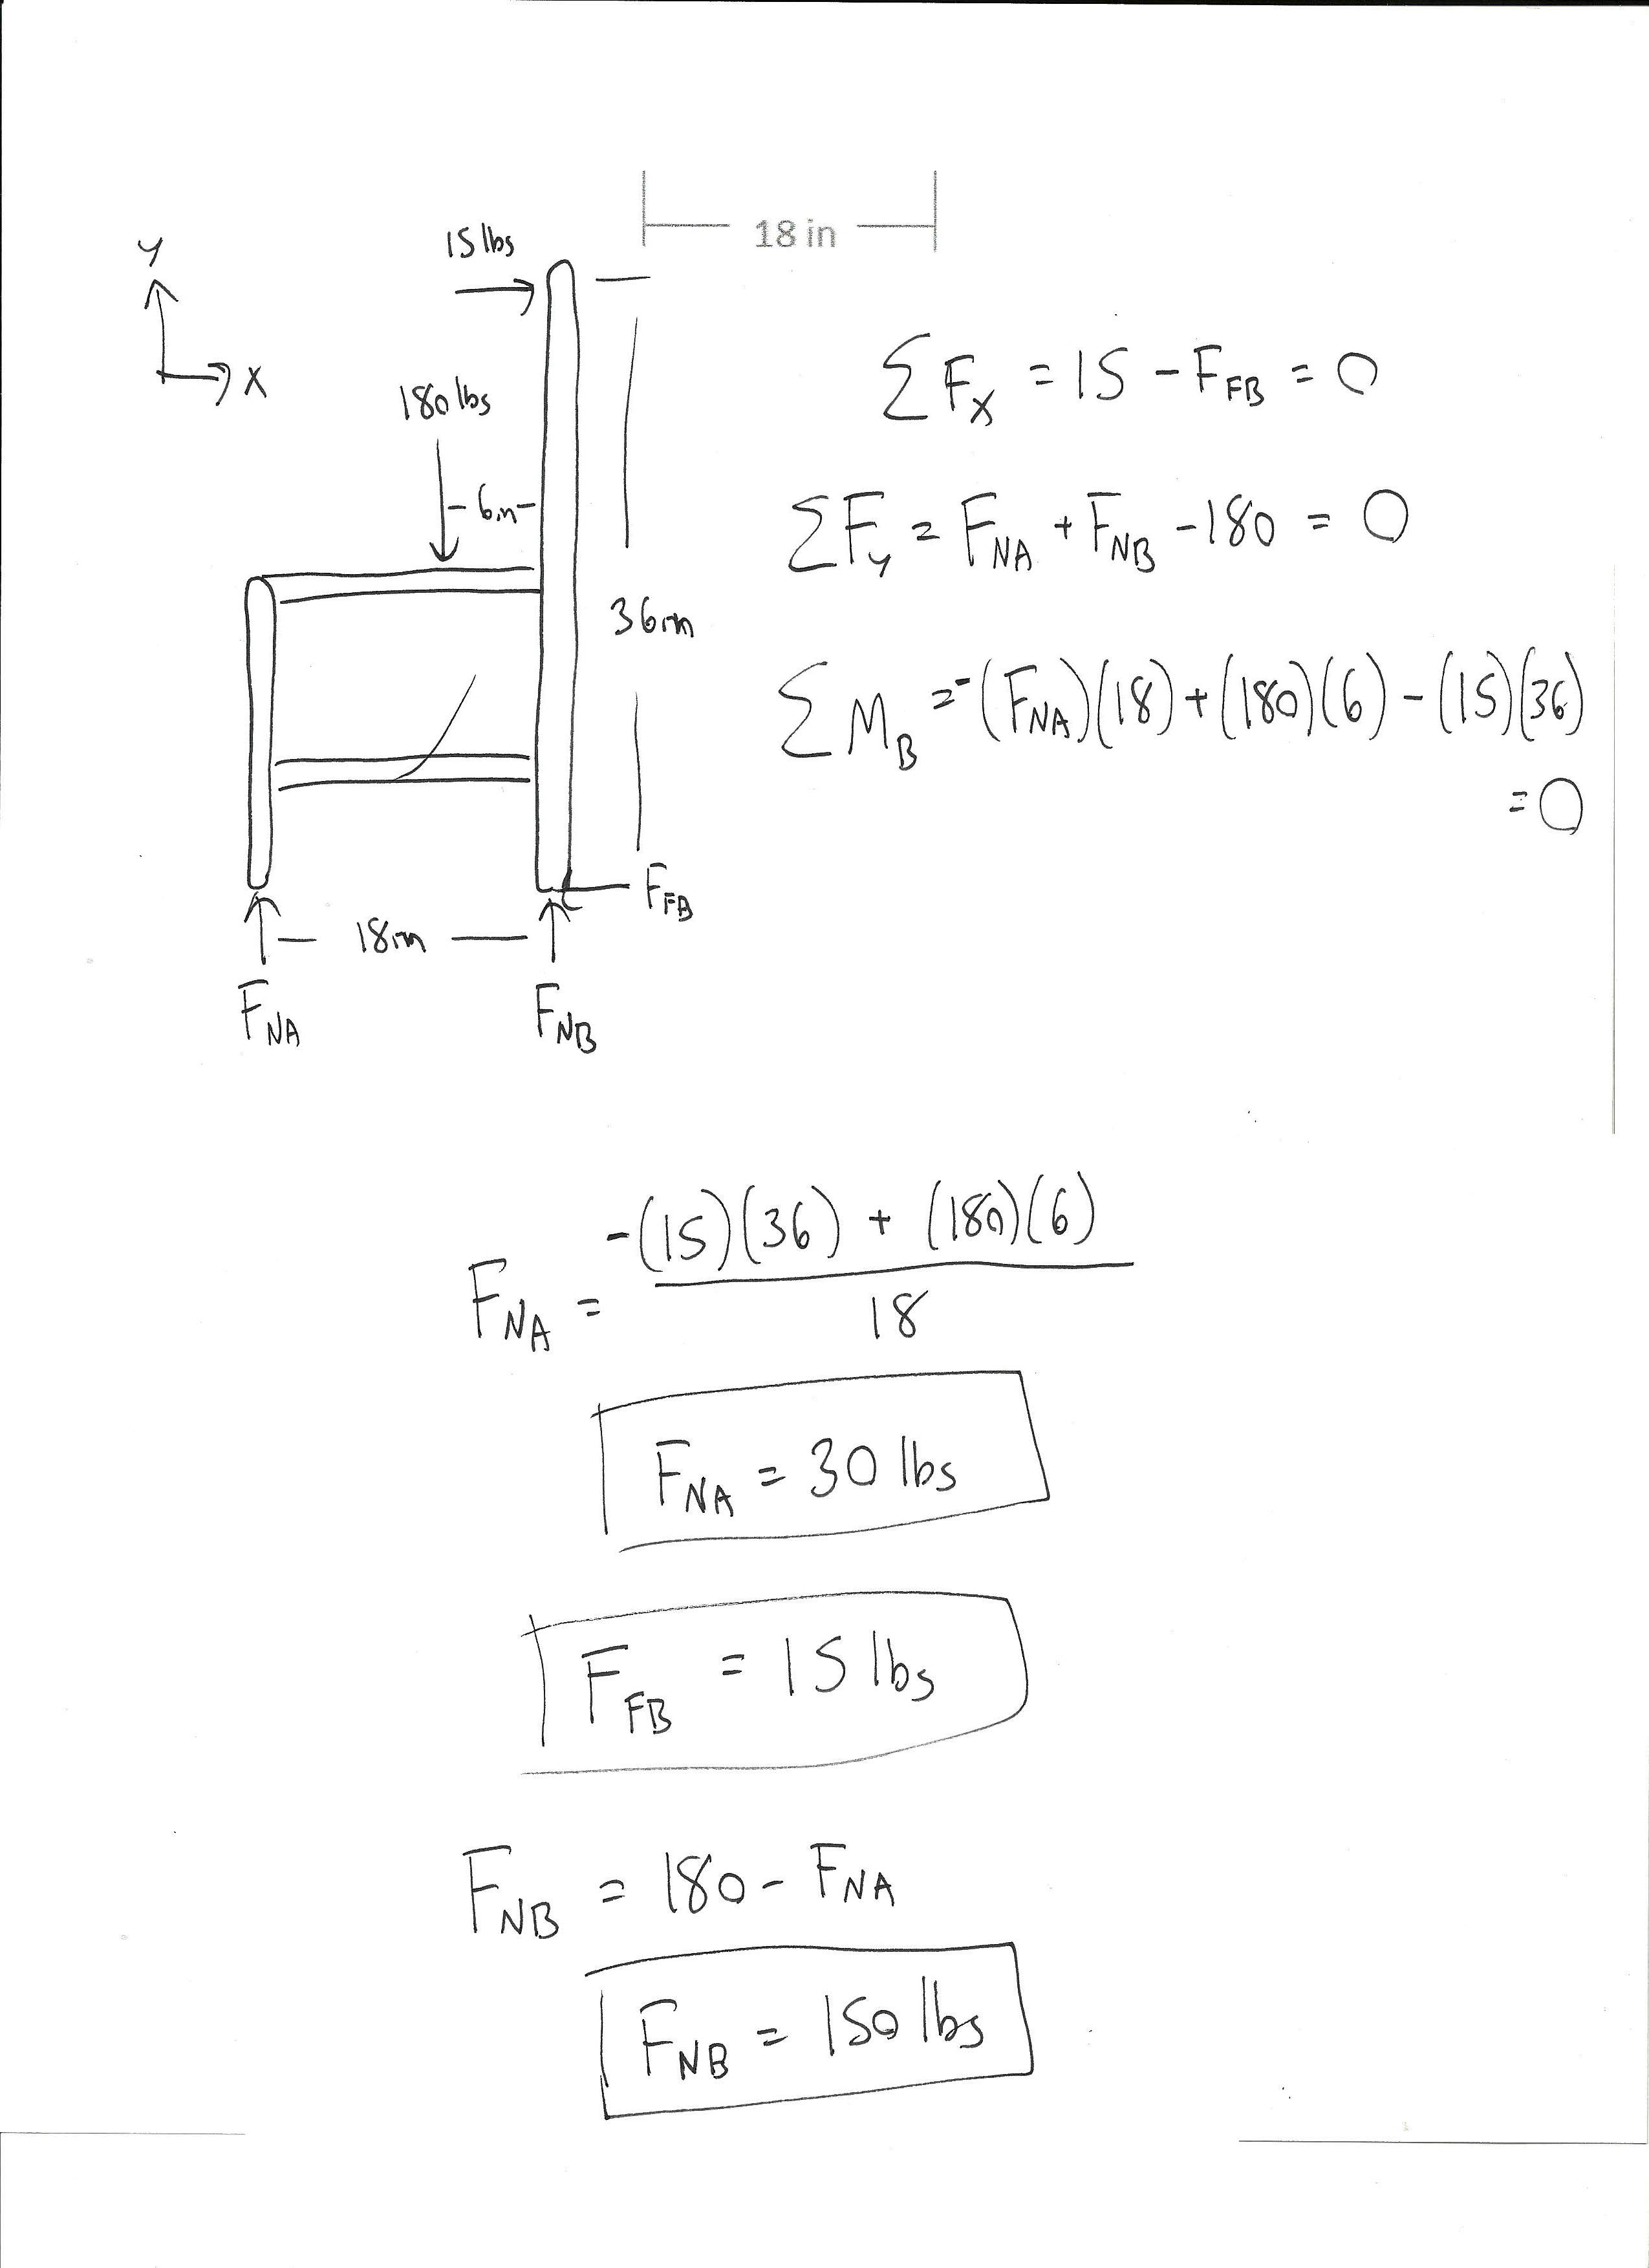 18 in
15 lbs
Y
X
180 lbs
6in
36in
F_FB
18in
F_NA
F_NB
ΣF_X = 15 - F_FB = 0
ΣF_y = F_NA + F_NB - 180 = 0
ΣM_B = -(F_NA)(18) + (180)(6) - (15)(36)
= 0
-(15)(36) + (180)(6)
F_NA =
18
F_NA = 30 lbs
F_FB = 15 lbs
F_NB = 180 - F_NA
F_NB = 150 lbs